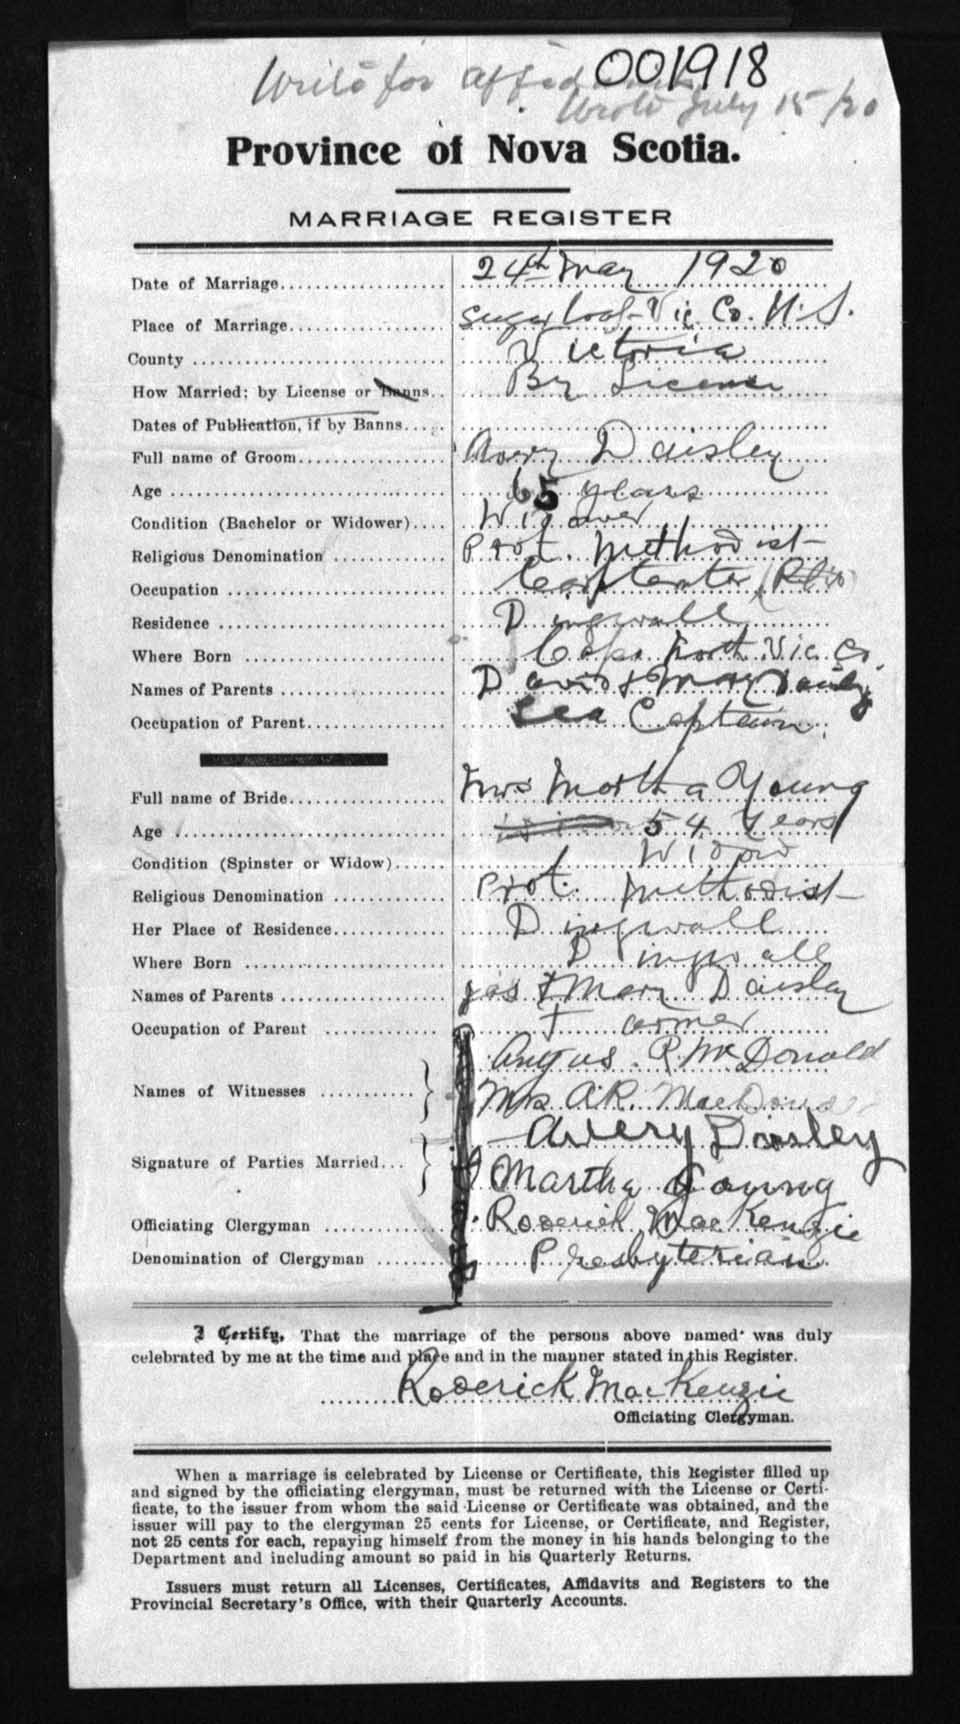 Write for
001918
Wrote July 15/20
Province of Nova Scotia.
MARRIAGE REGISTER
Date of Marriage 24th May 1920
Place of Marriage Sugar Loaf Vic Co. N.S.
County Victoria
How Married; by License or Banns By License
Dates of Publication, if by Banns
Full name of Groom Avery Daisley
Age 65 years
Condition (Bachelor or Widower) Widower
Religious Denomination Prot. Methodist
Occupation Carpenter
Residence Dingwall
Where Born Cape North Vic Co.
Names of Parents David & Mary Daisley
Occupation of Parent Sea Captain
Full name of Bride Mrs Martha Young
Age 54 Years
Condition (Spinster or Widow) Widow
Religious Denomination Prot. Methodist
Her Place of Residence Dingwall
Where Born Dingwall
Names of Parents Jas & Mary Daisley
Occupation of Parent Farmer
Angus. R. McDonald
Names of Witnesses Mrs A.R. MacDona
Avery Daisley
Signature of Parties Married Martha Young
Officiating Clergyman Roderick MacKenzie
Denomination of Clergyman Presbyterian
I Certify, That the marriage of the persons above named was duly
celebrated by me at the time and place and in the manner stated in this Register.
Roderick MacKenzie
Officiating Clergyman.
When a marriage is celebrated by License or Certificate, this Register filled up
and signed by the officiating clergyman, must be returned with the License or Certi-
ficate, to the issuer from whom the said License or Certificate was obtained, and the
issuer will pay to the clergyman 25 cents for License, or Certificate, and Register,
not 25 cents for each, repaying himself from the money in his hands belonging to the
Department and including amount so paid in his Quarterly Returns.
Issuers must return all Licenses, Certificates, Affidavits and Registers to the
Provincial Secretary's Office, with their Quarterly Accounts.